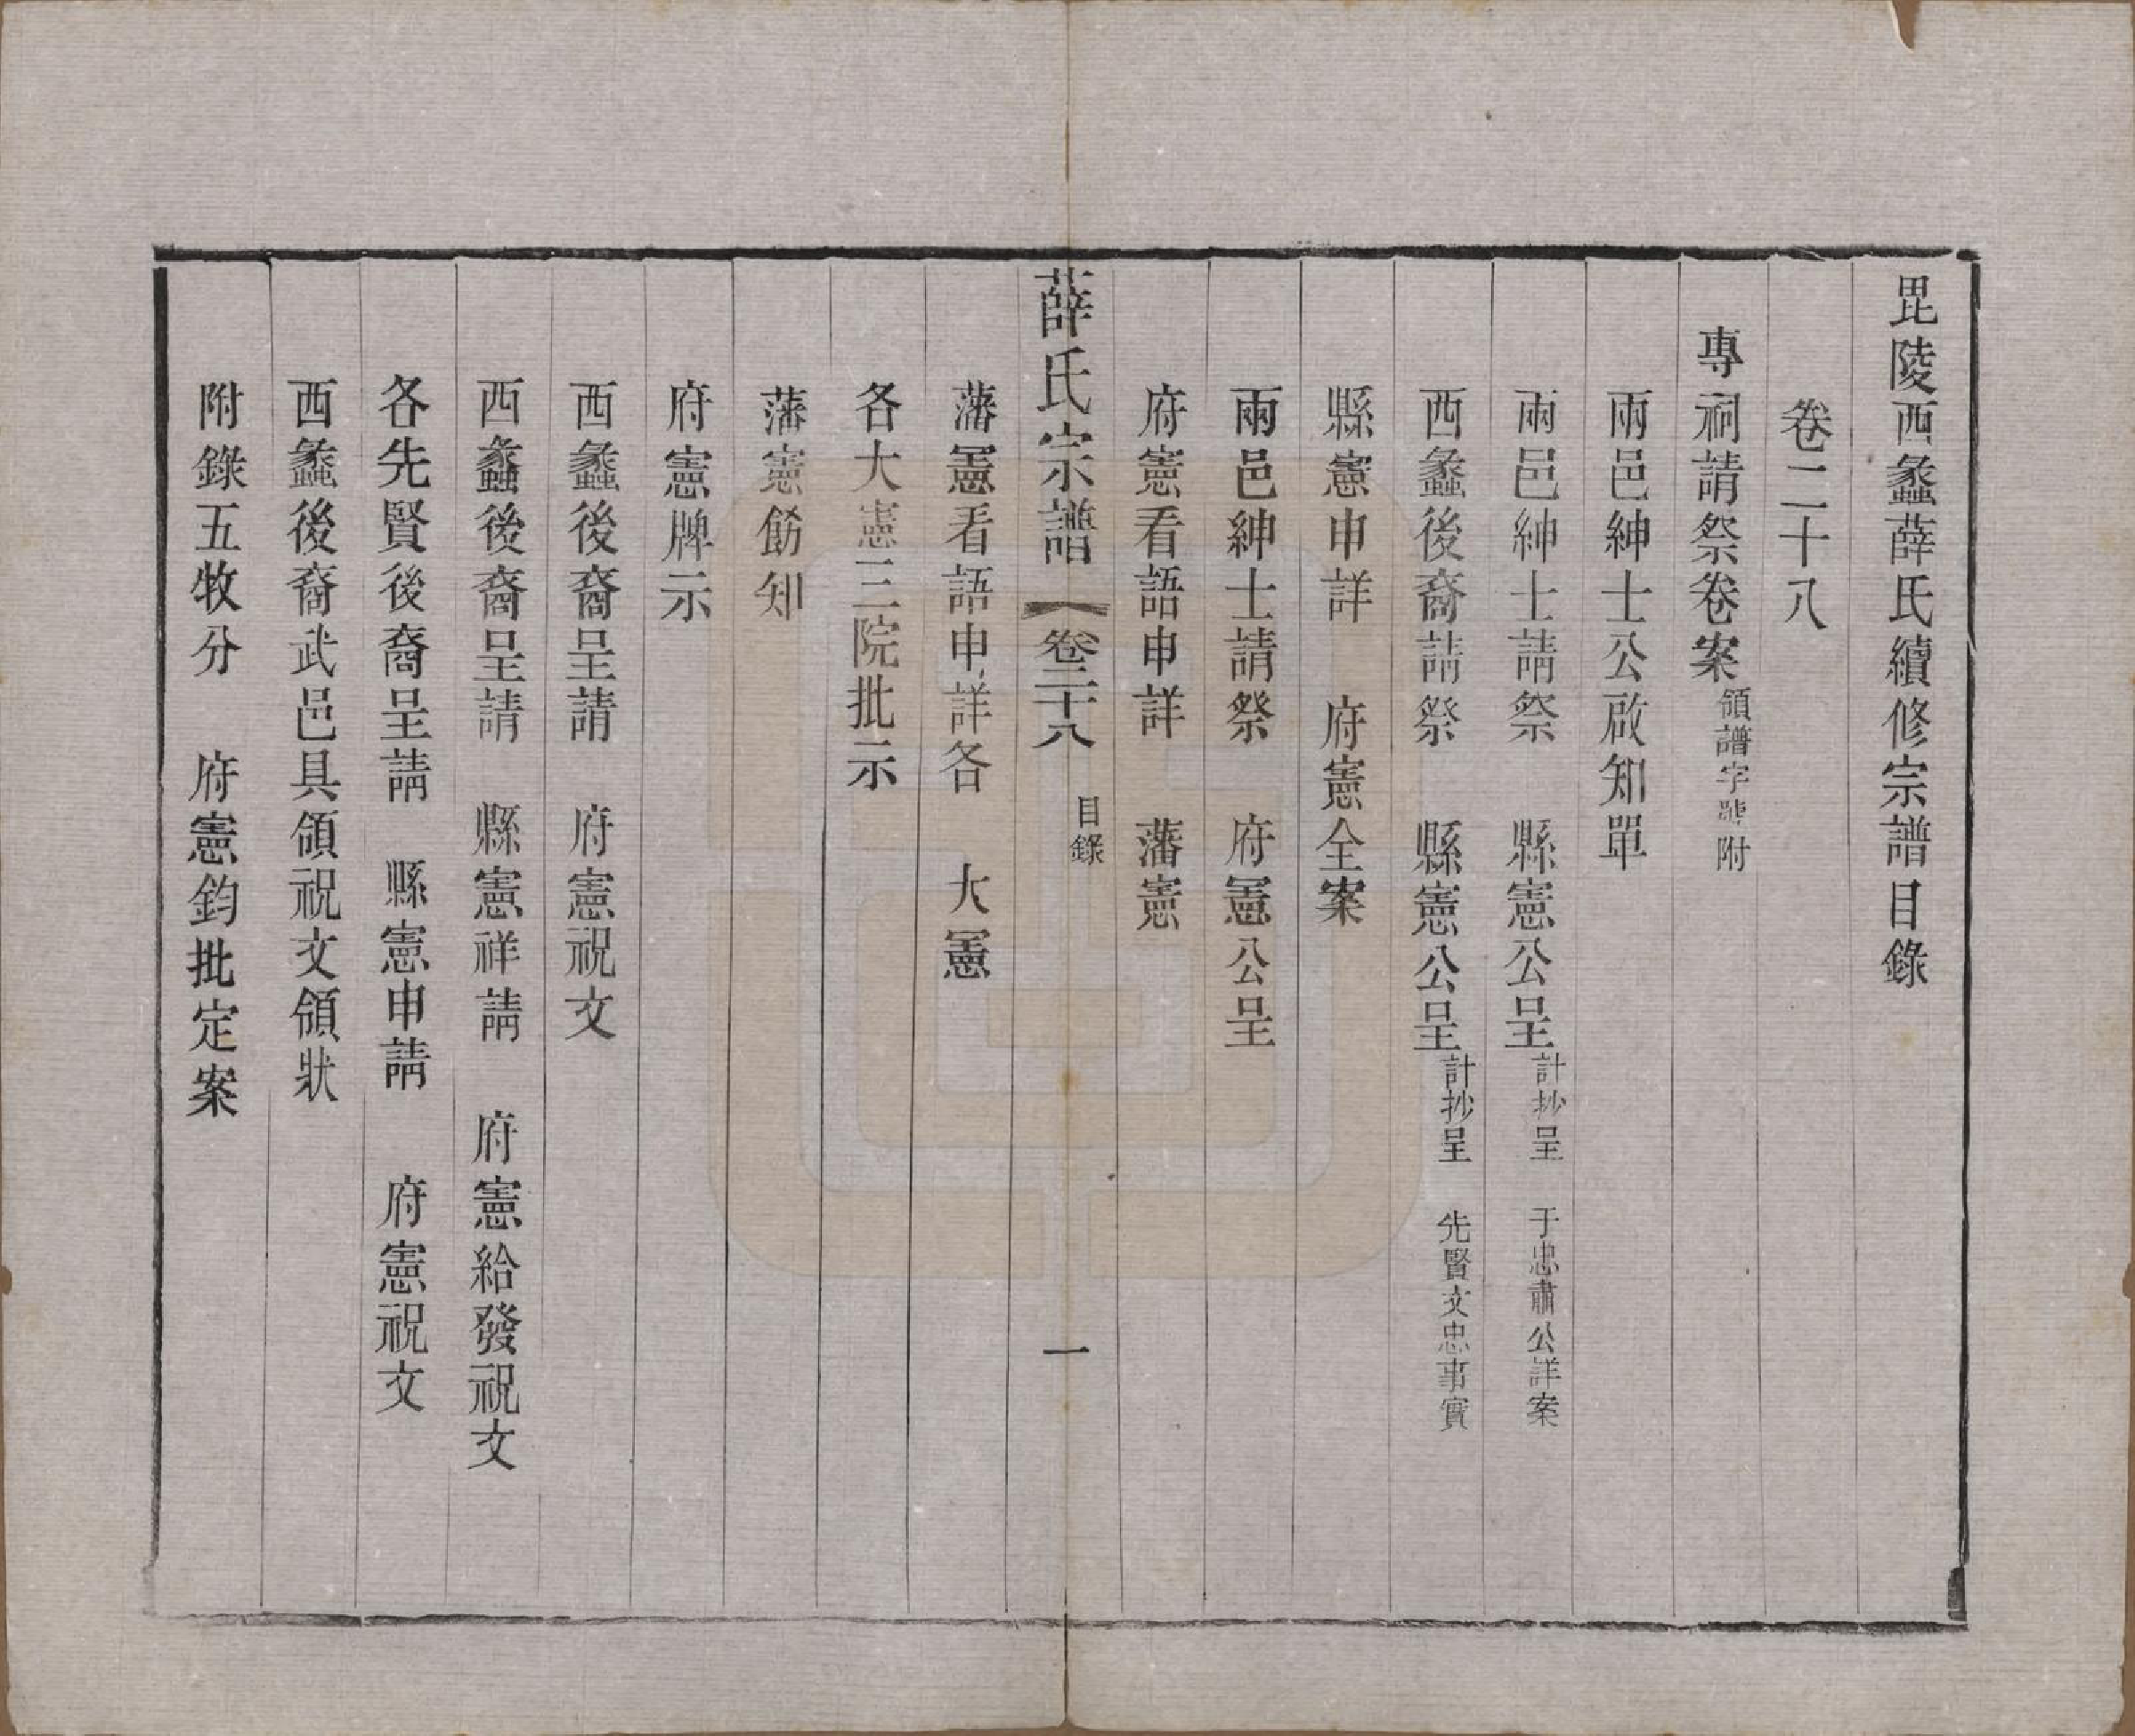 毘陵西蠡薛氏續修宗譜目錄
卷二十八
專祠請祭卷案領譜字號附
兩邑紳士公啟知單
兩邑紳士請祭　縣憲公呈計抄呈　于忠肅公詳案
西蠡後裔請祭　縣憲公呈計抄呈　先賢文忠事實
縣憲申詳　府憲全案
兩邑紳士請祭　府憲公呈
府憲看語申詳　藩憲
薛氏宗譜　卷二十八　目錄　一
藩憲看語申詳各　大憲
各大憲三院批示
藩憲飭知
府憲牌示
西蠡後裔呈請　府憲祝文
西蠡後裔呈請　縣憲祥請　府憲給發祝文
各先賢後裔呈請　縣憲申請　府憲祝文
西蠡後裔武邑具領祝文領狀
附錄五牧分　府憲鈞批定案